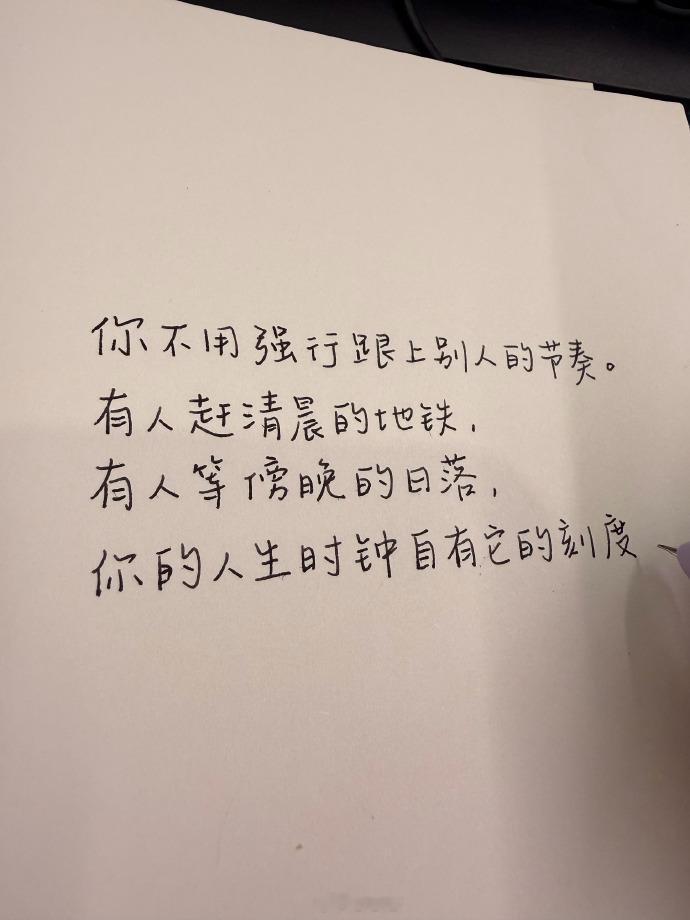 你不用强行跟上别人的节奏。
有人赶清晨的地铁,
有人等傍晚的日落,
你的人生时钟自有它的刻度